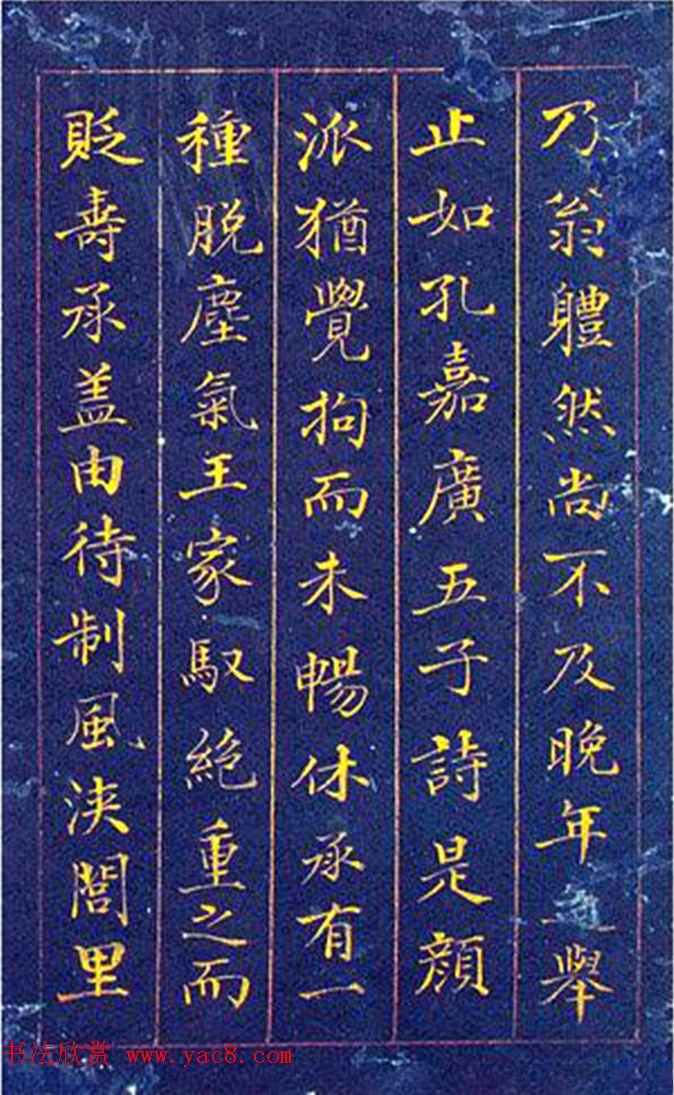 乃翁軆然尚不及晚年
舉
止如孔嘉廣五子詩是顔
派猶覺拘而未暢休承有一
種脱塵氣王家馭絶重之而
貶壽承盖由待制風浹閭里
书法欣赏 www.yac8.com